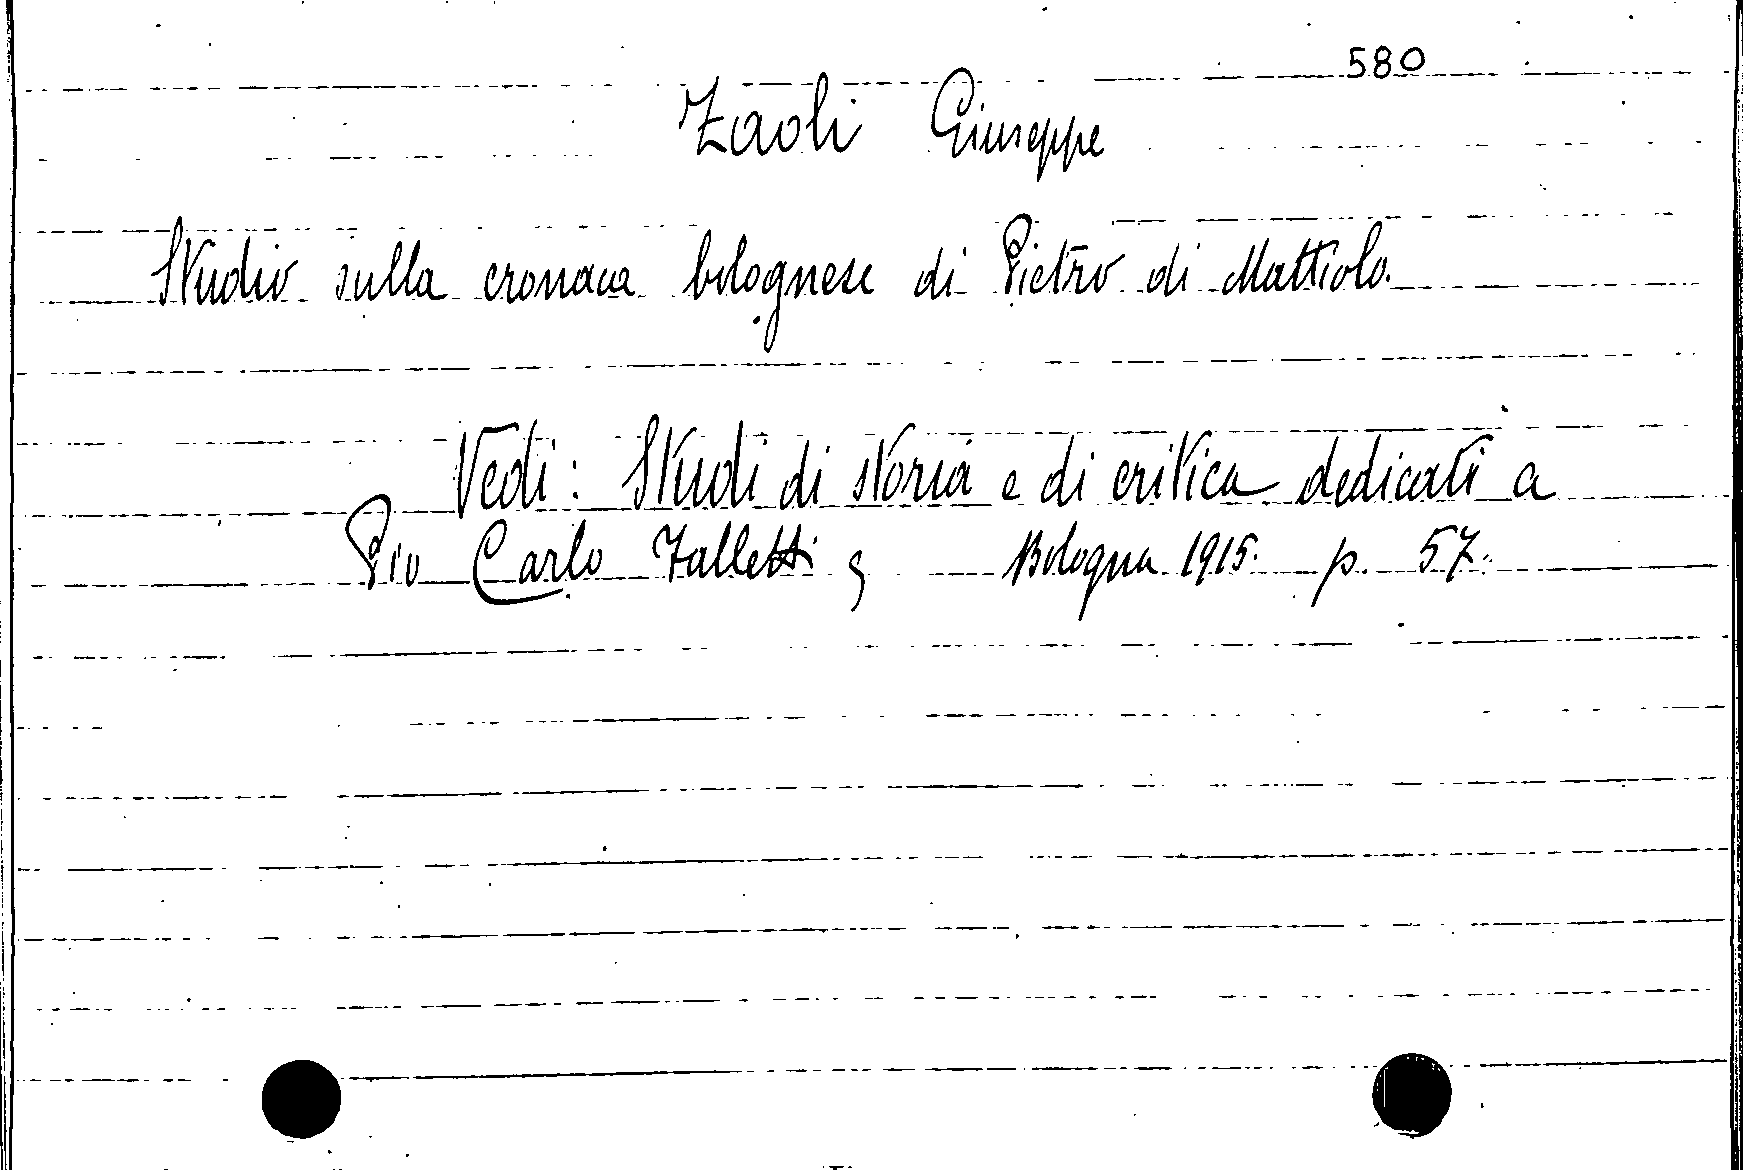 580
Zaoli Giuseppe
Studio sulla cronaca bolognese di Pietro di Mattiolo.
Vedi: Studi di storia e di critica dedicati a
Pio Carlo Falletti ; Bologna 1915. p. 57.